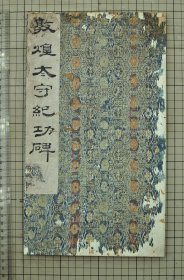 敦煌太守紀功碑